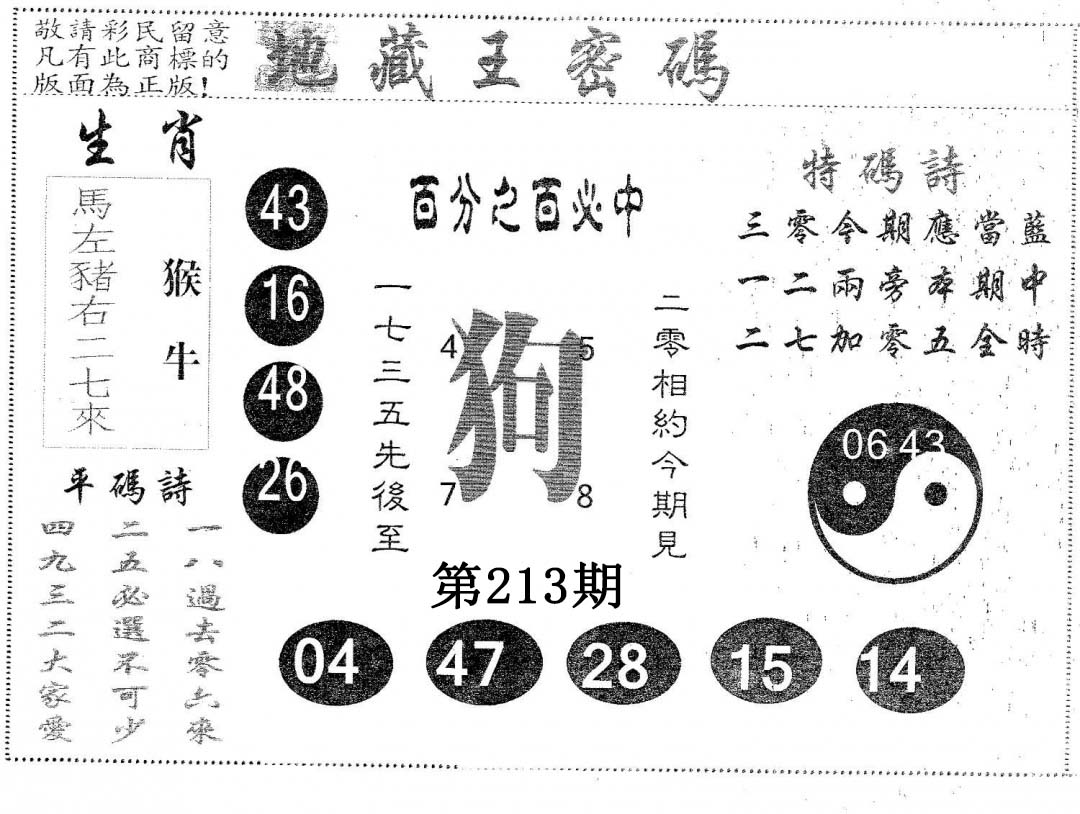 敬請彩民留意
凡有此商標的
版面為正版!
地藏王密碼
生肖
馬左豬右二七來
猴牛
43
16
48
26
平碼詩
一八過去零六來
二五必選不可少
四九三二大家愛
百分之百必中
一七三五先後至
狗
4
5
7
8
二零相約今期見
第213期
特碼詩
三零今期應當藍
一二兩旁本期中
二七加零五全時
06 43
04
47
28
15
14